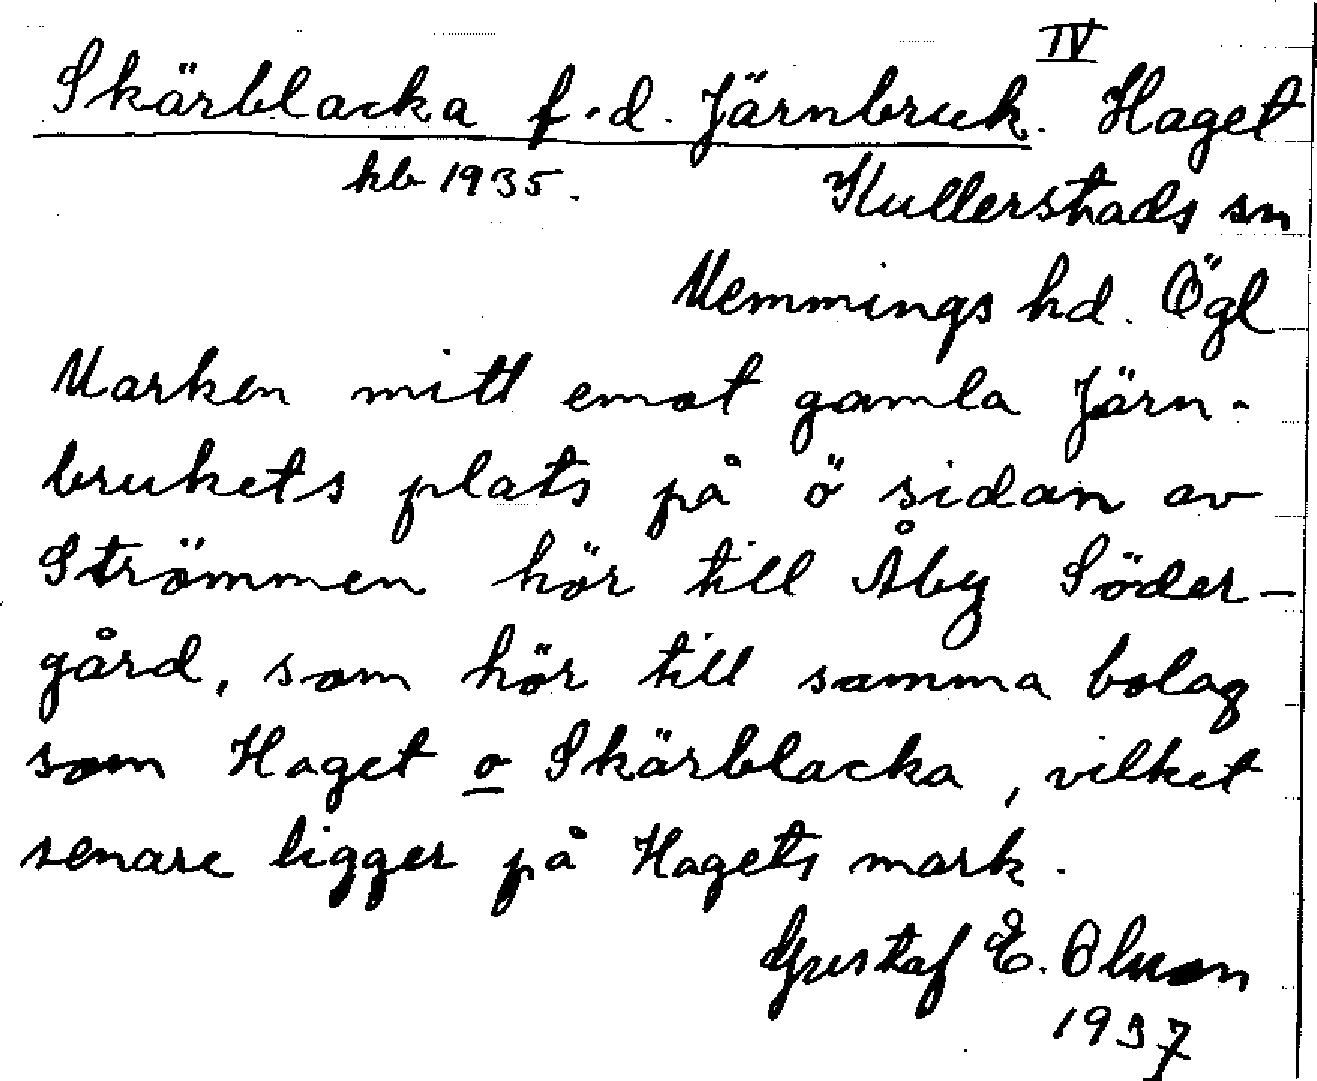 IV
Skärblacka f.d. Järnbruk. Haget
hb 1935.
Kullerstads sn
Memmings hd. Ögl
Marken mitt emot gamla Järn-
brukets plats på ö sidan av
Strömmen hör till Åby Söder-
gård, som hör till samma bolag
som Haget o Skärblacka, vilket
senare ligger på Hagets mark.
Gustaf E. Olson
1937